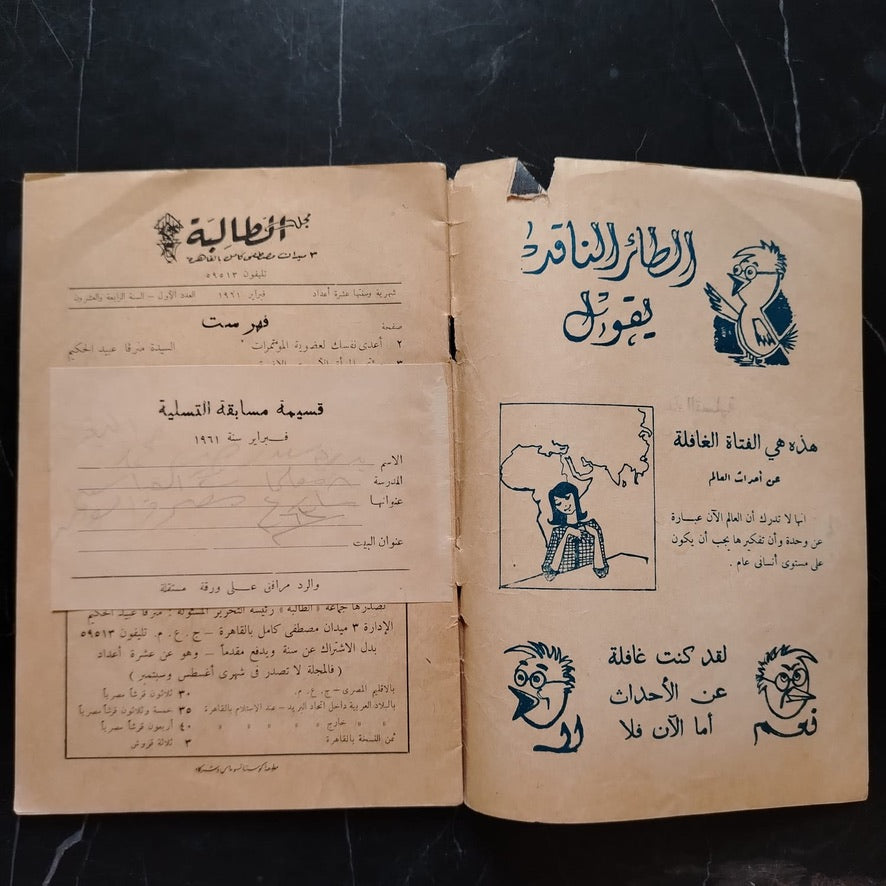 مجلة الطالبة
٣ ميدان مصطفى كامل بالقاهرة
تليفون ٥٩٥١٣
شهرية وسنتها عشرة أعداد فبراير ١٩٦١ العدد الأول – السنة الرابعة والعشرون
فهرست
صفحة
٢ أعدى نفسك لعضوية المؤتمرات السيدة مرقا عبيد الحكيم
٣
قسيمة مسابقة التسلية
فبراير سنة ١٩٦١
الاسم
المدرسة
عنوانها
عنوان البيت
والرد مرافق على ورقة مستقلة
تصدرها جماعة «الطالبة» رئيسة التحرير المسئولة : مرقا عبيد الحكيم
الإدارة ٣ ميدان مصطفى كامل بالقاهرة – ج . ع . م . تليفون ٥٩٥١٣
بدل الاشتراك عن سنة ويدفع مقدماً – وهو عن عشرة أعداد
( فالمجلة لا تصدر فى شهرى أغسطس وسبتمبر )
بالاقليم المصرى – ج . ع . م . ٣٠ ثلاثون قرشاً مصرياً
بالبلاد العربية داخل اتحاد البريد – عند الاستلام بالقاهرة ٣٥ خمسة وثلاثون قرشاً مصرياً
» » خارج » » » » ٤٠ أربعون قرشاً مصرياً
ثمن النسخة بالقاهرة ٣ ثلاثة قروش
الطائر الناقد
يقول
هذه هي الفتاة الغافلة
عن أحداث العالم
انها لا تدرك أن العالم الآن عبارة
عن وحدة وأن تفكيرها يجب أن يكون
على مستوى أنسانى عام .
لقد كنت غافلة
عن الأحداث
أما الآن فلا
نعم
لا